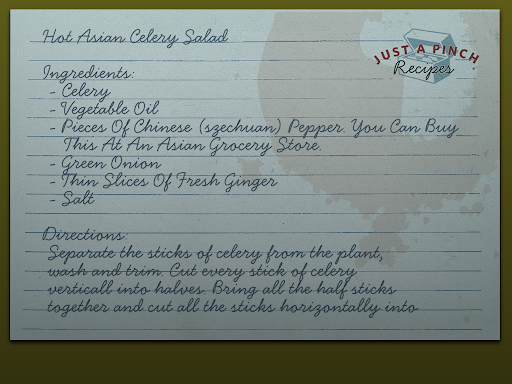 Hot Asian Celery Salad
JUST A PINCH
Recipes
Ingredients:
- Celery
- Vegetable Oil
- Pieces Of Chinese (szechuan) Pepper. You Can Buy
This At An Asian Grocery Store.
- Green Onion
- Thin Slices Of Fresh Ginger
- Salt
Directions:
Separate the sticks of celery from the plant,
wash and trim. Cut every stick of celery
verticall into halves. Bring all the half sticks
together and cut all the sticks horizontally into